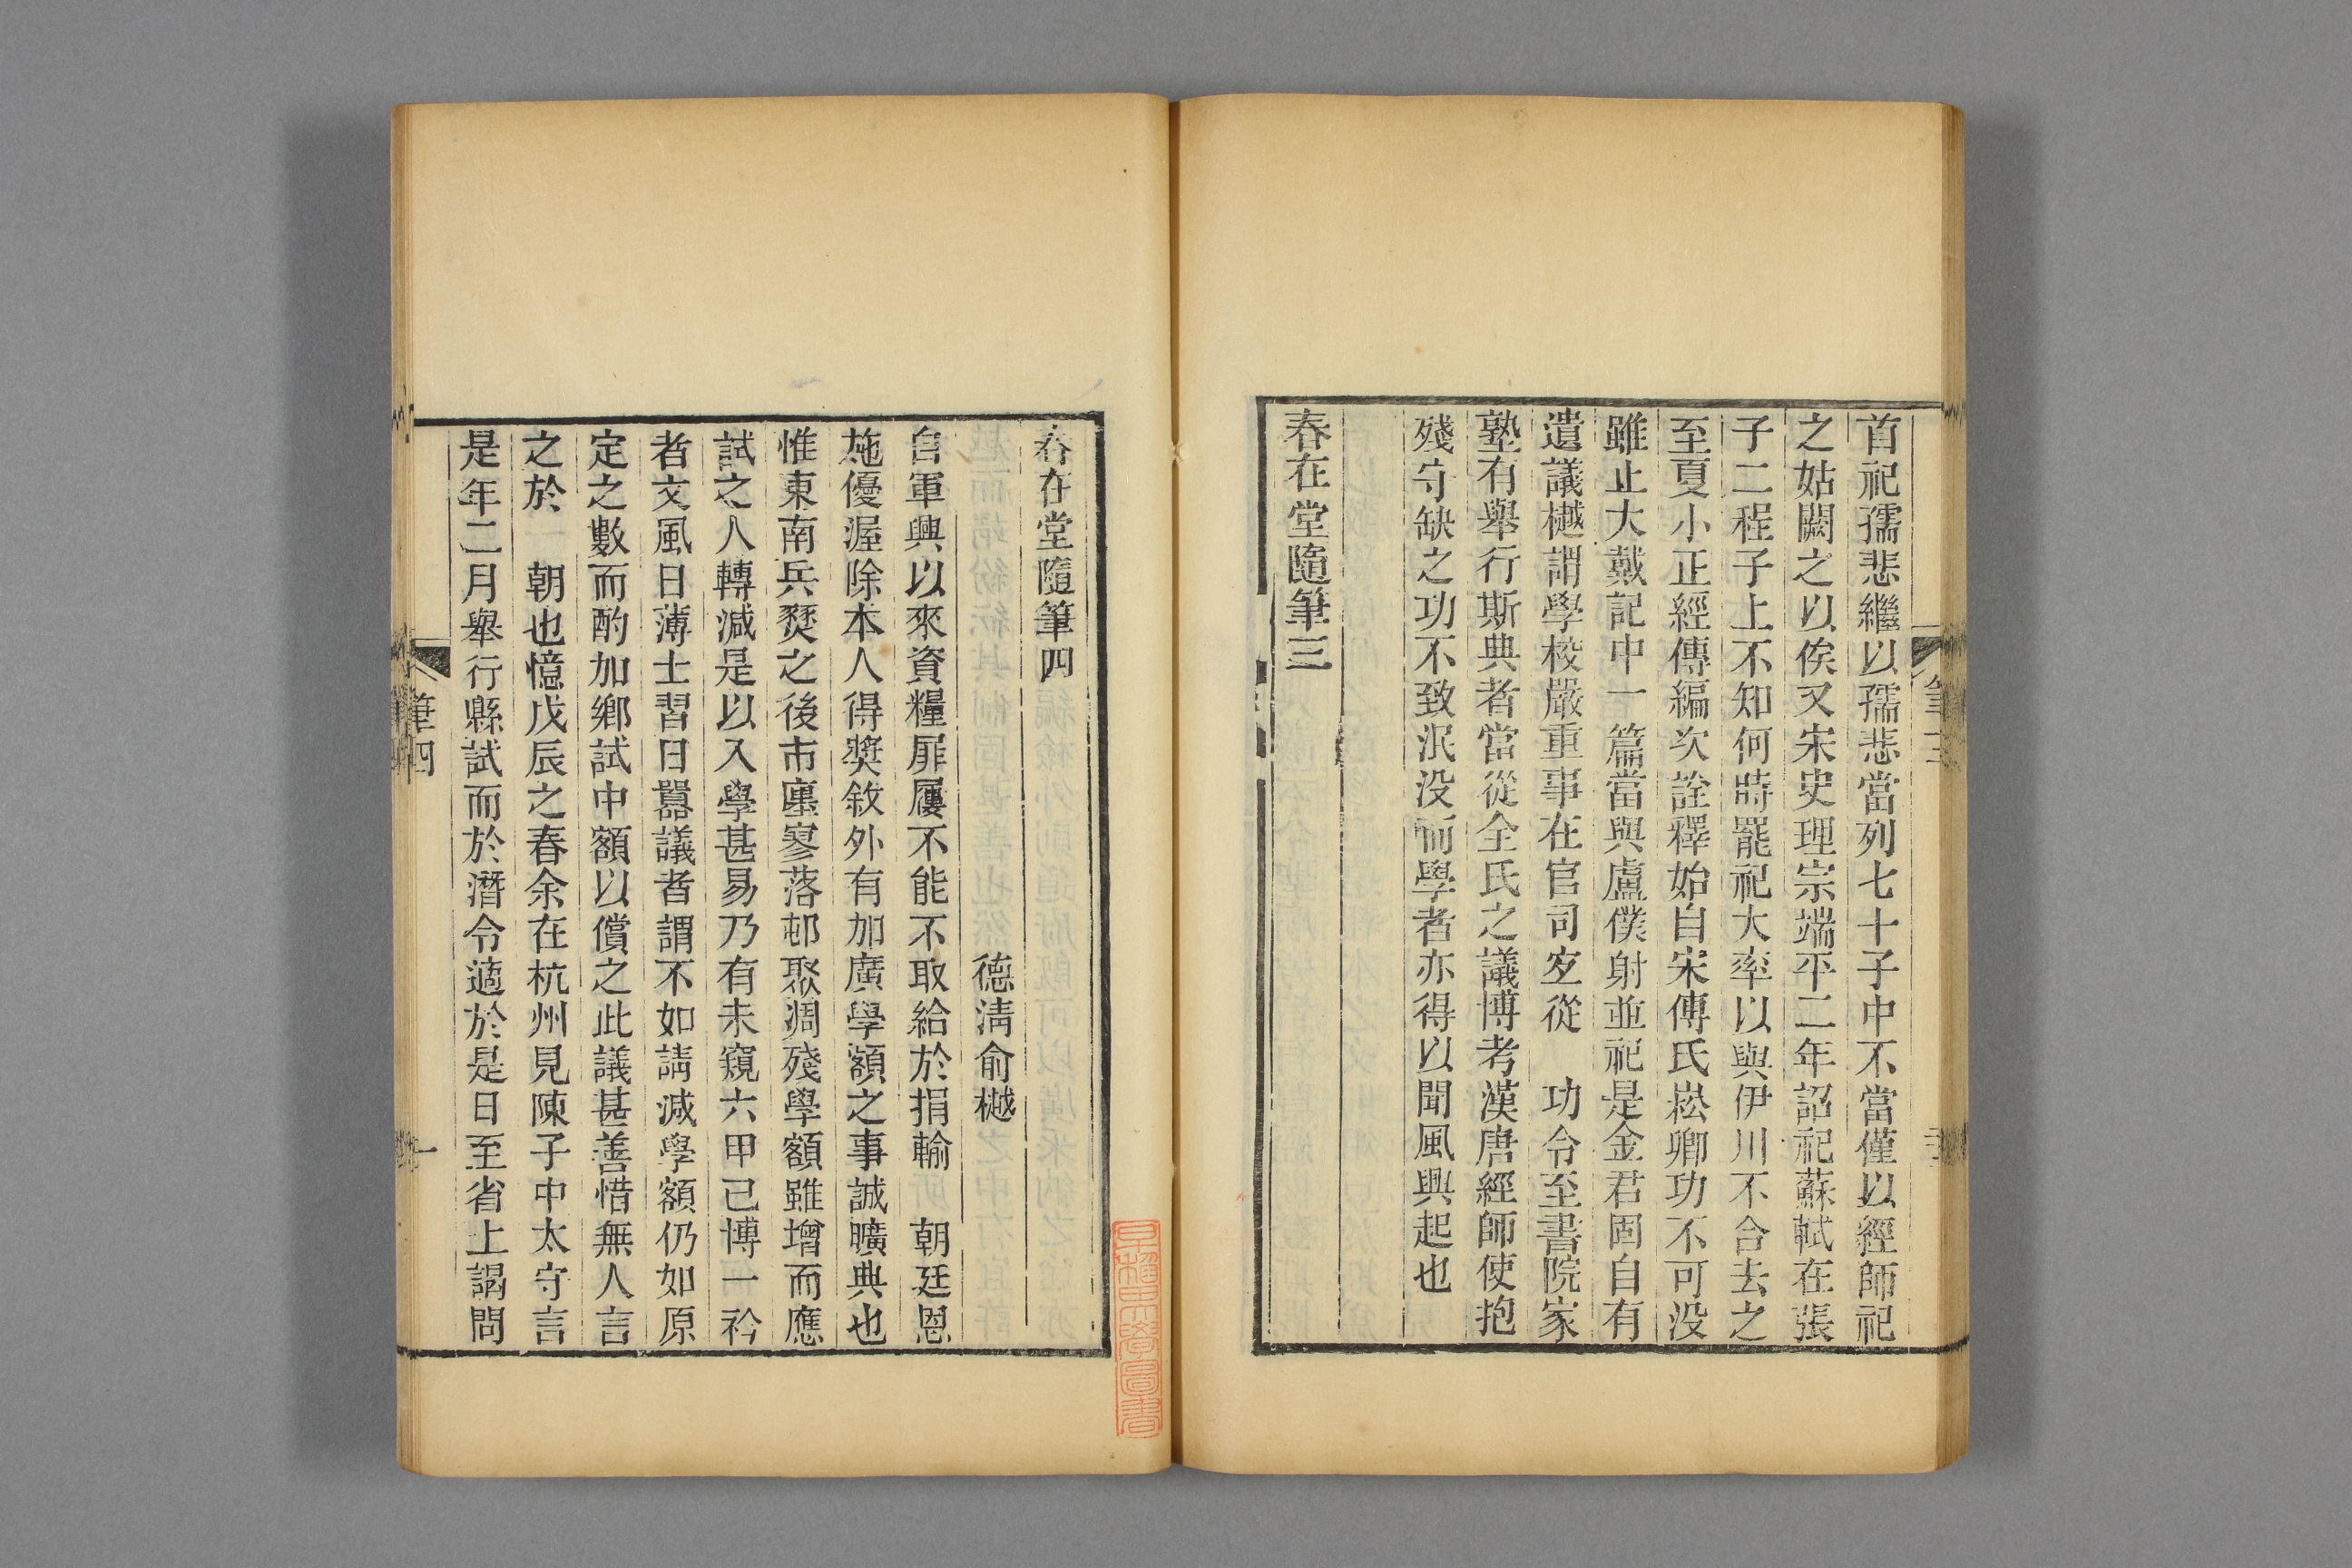 首祀孺悲繼以孺悲當列七十子中不當僅以經師祀
之姑闕之以俟又宋史理宗端平二年詔祀蘇軾在張
子二程子上不知何時罷祀大率以與伊川不合去之
至夏小正經傳編次詮釋始自宋傅氏崧卿功不可沒
雖止大戴記中一篇當與盧僕射並祀是金君固自有
遺議樾謂學校嚴重事在官司宜從　功令至書院家
塾有舉行斯典者當從全氏之議博考漢唐經師使抱
殘守缺之功不致泯没而學者亦得以聞風興起也
春在堂隨筆三
春在堂隨筆四
德淸俞樾
自軍興以來資糧屝屨不能不取給於捐輸　朝廷恩
施優渥除本人得奬敘外有加廣學額之事誠曠典也
惟東南兵燹之後市廛寥落邨聚凋殘學額雖增而應
試之人轉減是以入學甚易乃有未窺六甲已博一衿
者文風日薄士習日囂議者謂不如請減學額仍如原
定之數而酌加鄉試中額以償之此議甚善惜無人言
之於　朝也憶戊辰之春余在杭州見陳子中太守言
是年二月舉行縣試而於潛令適於是日至省上謁問
筆四
一